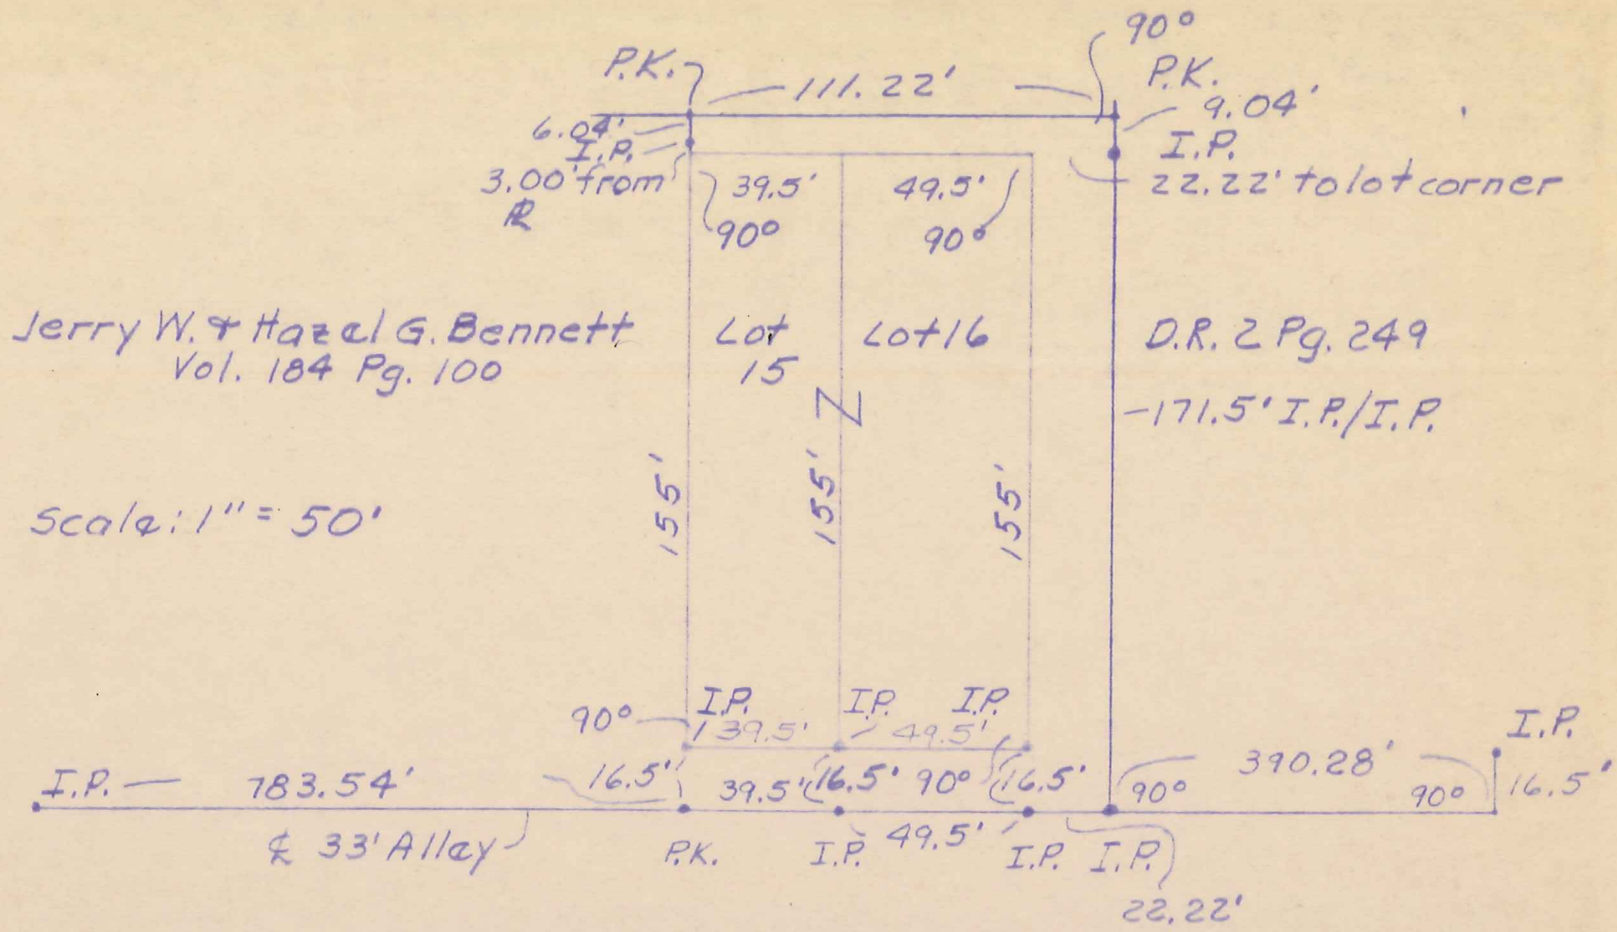 90°
P.K.
111.22'
P.K.
9.04'
6.04'
I.P.
I.P.
3.00' from
22.22' to lot corner
39.5'
49.5'
90°
90°
Jerry W. & Hazel G. Bennett
Vol. 184 Pg. 100
Lot
15
Lot 16
D.R. 2 Pg. 249
171.5' I.P./I.P.
Z
155'
155'
155'
Scale: 1" = 50'
I.P.
I.P.
I.P.
90°
39.5'
49.5'
I.P.
I.P.
783.54'
16.5'
39.5'
16.5'
90°
16.5'
90°
390.28'
90°
16.5'
℄ 33' Alley
P.K.
I.P.
49.5'
I.P.
I.P.
22.22'